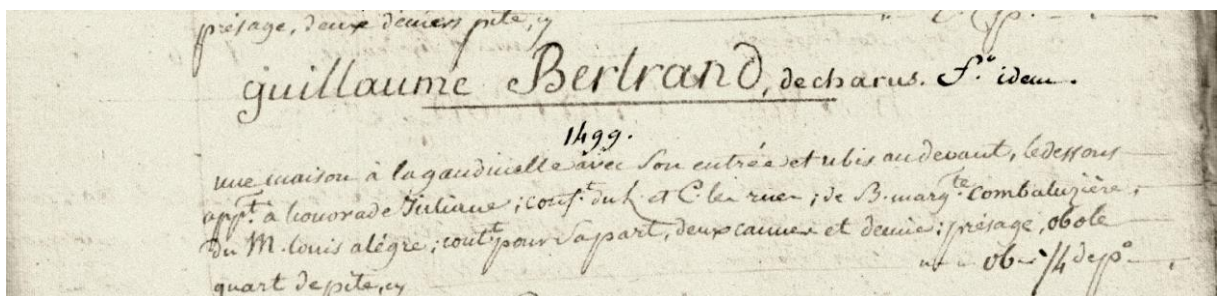 présage, deux deniers pite, cy
guillaume Bertrand, de charus. f.º idem.
1499.
une maison à la gaudinelle avec son entrée et ubis au devant, le dessous
app.t à honorade Juliane; conf.t du et C. les rues; de B. marg.te combaluzière,
du M. louis alègre; cont.t pour sa part, deux cannes et demie; présage, obole
quart de pite, cy ob. 1/4 de p.º